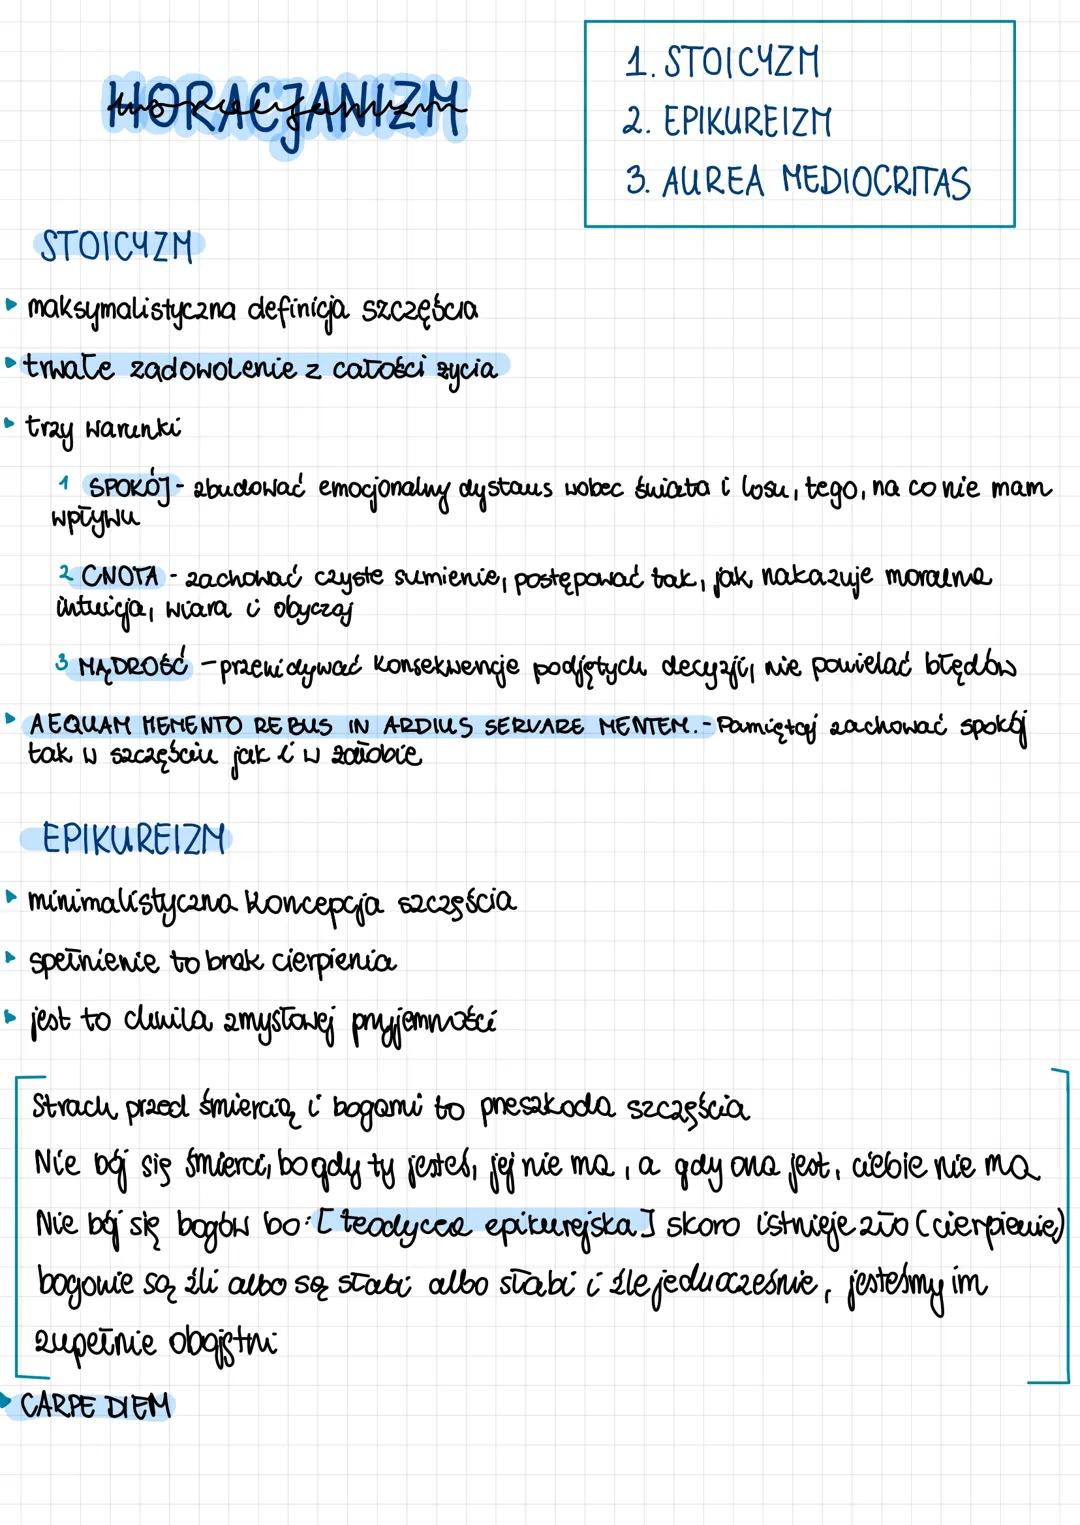 HORACJANIZM
horacjanizm
1. STOICYZM
2. EPIKUREIZM
3. AUREA MEDIOCRITAS
STOICYZM
maksymalistyczna definicja szczęścia
trwałe zadowolenie z całości życia
trzy warunki
1 SPOKÓJ - zbudować emocjonalny dystans wobec świata i losu, tego, na co nie mam
wpływu
2 CNOTA - zachować czyste sumienie, postępować tak, jak nakazuje moralna
intuicja, wiara i obyczaj
3 MĄDROŚĆ - przewidywać konsekwencje podjętych decyzji, nie powielać błędów
AEQUAM MEMENTO REBUS IN ARDIUS SERVARE MENTEM. - Pamiętaj zachować spokój
tak w szczęściu jak i w żałobie
EPIKUREIZM
minimalistyczna koncepcja szczęścia
spełnienie to brak cierpienia
jest to chwila zmysłowej przyjemności
Strach przed śmiercią i bogami to przeszkoda szczęścia
Nie bój się śmierci, bo gdy ty jesteś, jej nie ma, a gdy ona jest, ciebie nie ma
Nie bój się bogów bo: [teodycea epikurejska] skoro istnieje zło (cierpienie)
bogowie są źli albo są słabi albo słabi i źle jednocześnie, jesteśmy im
zupełnie obojętni
CARPE DIEM